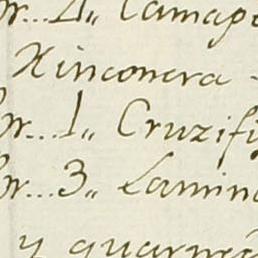 Pr... 4,, Camape
Rinconera -
Pr... 1,, Cruzifi
Pr... 3,, Lamina
y guarne